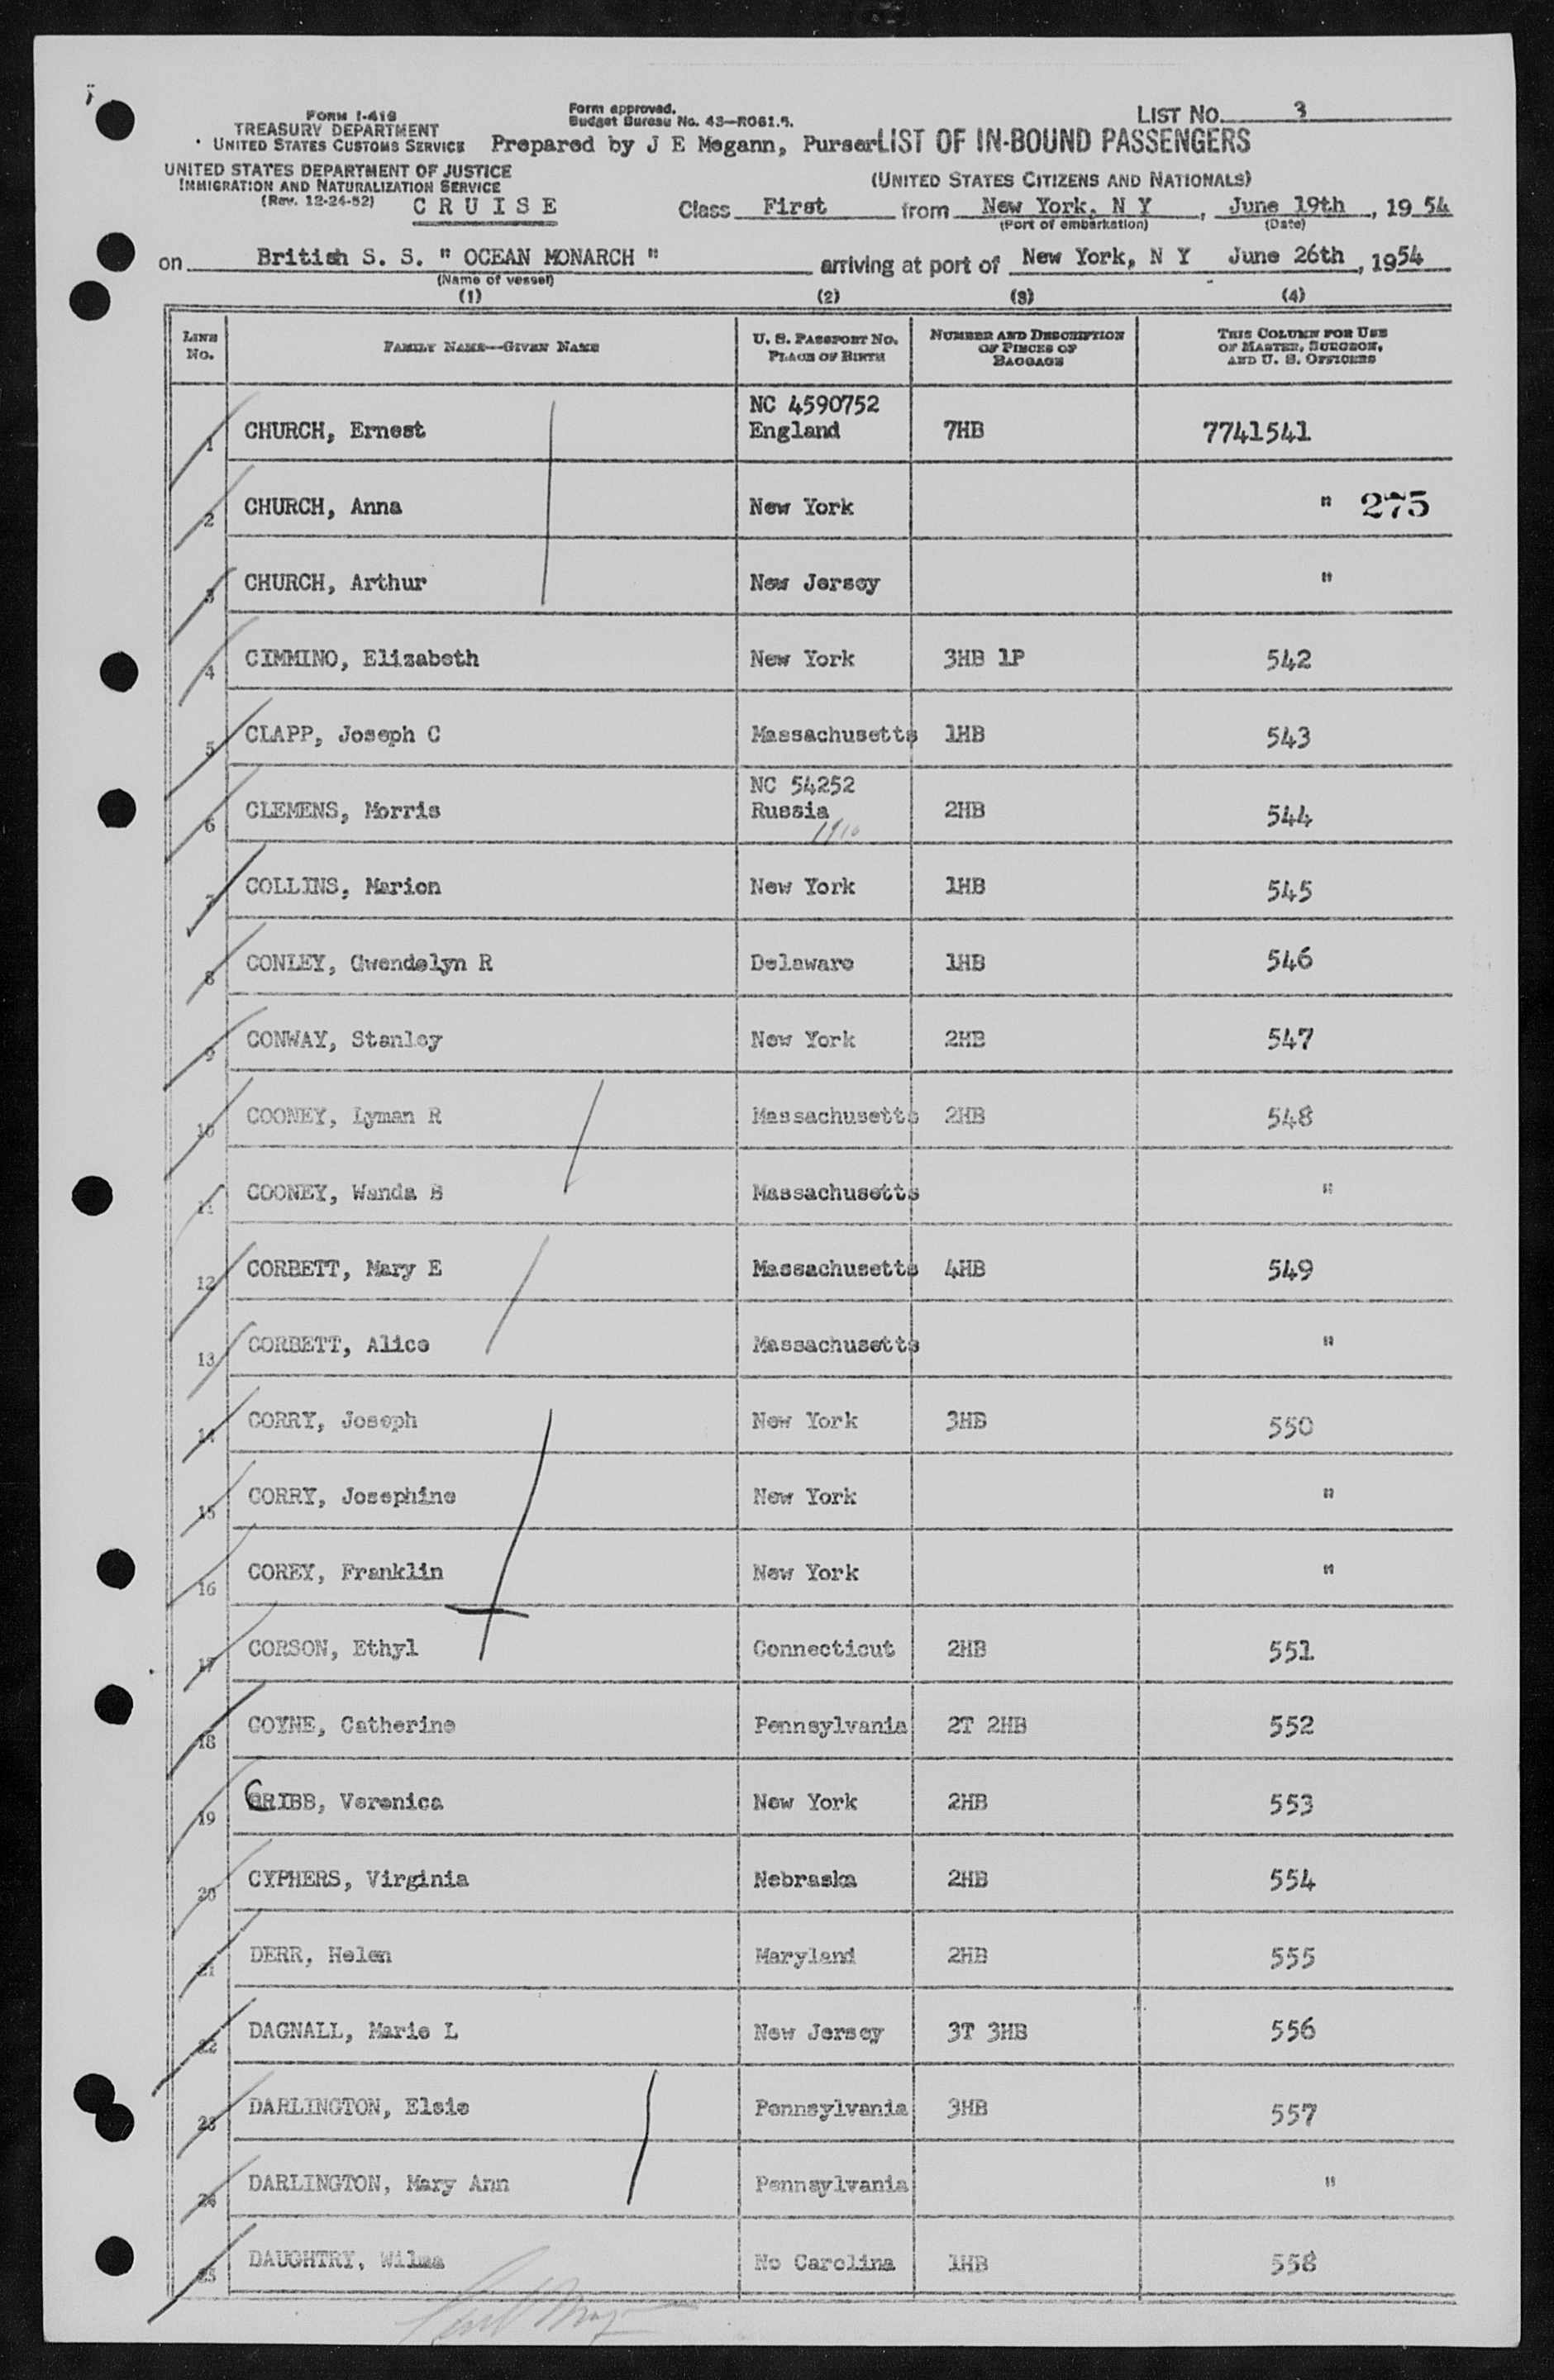 FORM I-418
TREASURY DEPARTMENT
UNITED STATES CUSTOMS SERVICE
UNITED STATES DEPARTMENT OF JUSTICE
IMMIGRATION AND NATURALIZATION SERVICE
(Rev. 12-24-52)
CRUISE
Form approved.
Budget Bureau No. 43—R061.5.
Prepared by J E Megann, Purser
LIST NO. 3
LIST OF IN-BOUND PASSENGERS
(UNITED STATES CITIZENS AND NATIONALS)
Class First from New York, N Y, June 19th, 1954
(Port of embarkation) (Date)
on British S. S. " OCEAN MONARCH " arriving at port of New York, N Y June 26th, 1954
(Name of vessel)
(1) (2) (3) (4)
LINE No. FAMILY NAME—GIVEN NAME U. S. PASSPORT NO. PLACE OF BIRTH NUMBER AND DESCRIPTION OF PIECES OF BAGGAGE THIS COLUMN FOR USE OF MASTER, SURGEON, AND U. S. OFFICERS
NC 4590752
1 CHURCH, Ernest England 7HB 7741541
2 CHURCH, Anna New York " 275
3 CHURCH, Arthur New Jersey "
4 CIMMINO, Elizabeth New York 3HB 1P 542
5 CLAPP, Joseph C Massachusetts 1HB 543
NC 54252
6 CLEMENS, Morris Russia 2HB 544
1910
7 COLLINS, Marion New York 1HB 545
8 CONLEY, Gwendelyn R Delaware 1HB 546
9 CONWAY, Stanley New York 2HB 547
10 COONEY, Lyman R Massachusetts 2HB 548
11 COONEY, Wanda B Massachusetts "
12 CORBETT, Mary E Massachusetts 4HB 549
13 CORBETT, Alice Massachusetts "
14 CORRY, Joseph New York 3HB 550
15 CORRY, Josephine New York "
16 COREY, Franklin New York "
17 CORSON, Ethyl Connecticut 2HB 551
18 COYNE, Catherine Pennsylvania 2T 2HB 552
19 CRIBB, Veronica New York 2HB 553
20 CYPHERS, Virginia Nebraska 2HB 554
21 DERR, Helen Maryland 2HB 555
22 DAGNALL, Marie L New Jersey 3T 3HB 556
23 DARLINGTON, Elsie Pennsylvania 3HB 557
24 DARLINGTON, Mary Ann Pennsylvania "
25 DAUGHTRY, Wilma No Carolina 1HB 558